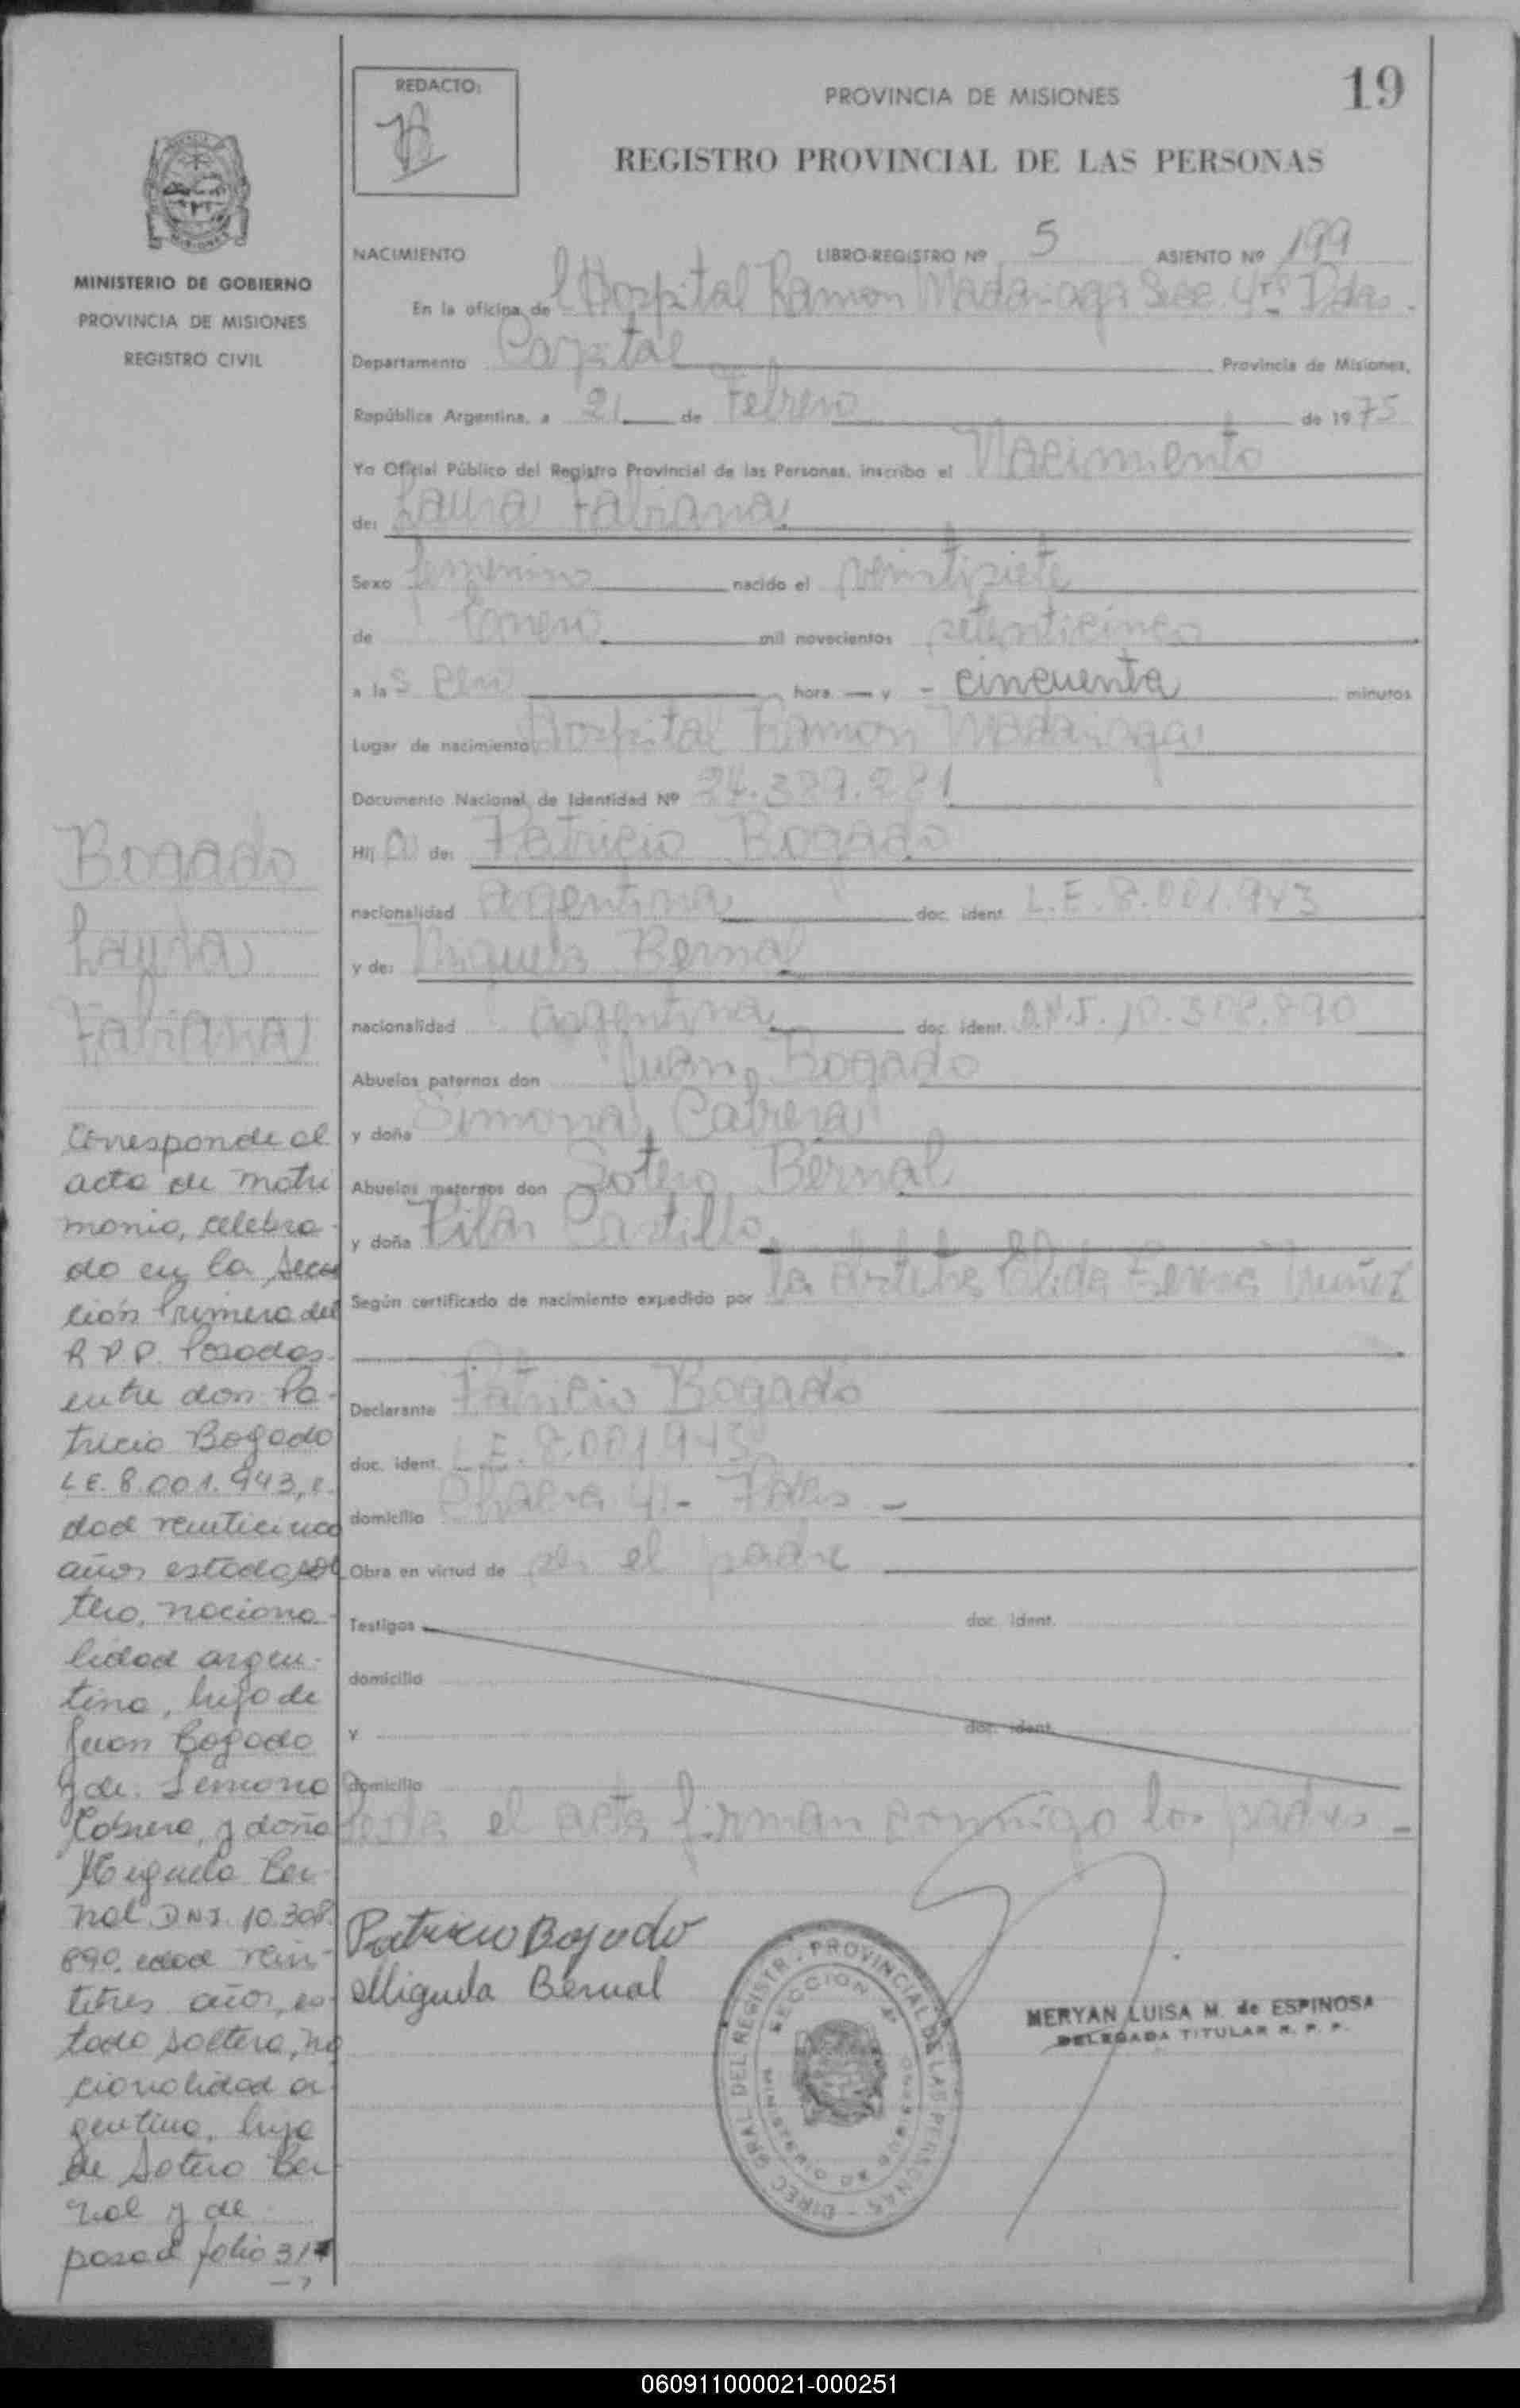 19
REDACTO:
PROVINCIA DE MISIONES
REGISTRO PROVINCIAL DE LAS PERSONAS
MINISTERIO DE GOBIERNO
PROVINCIA DE MISIONES
REGISTRO CIVIL
NACIMIENTO LIBRO-REGISTRO Nº 5 ASIENTO Nº 199
En la oficina del Hospital Ramon Madariaga Secc. 4ta Pdas.
Departamento Capital Provincia de Misiones,
República Argentina, a 21 de Febrero de 1975
Yo Oficial Público del Registro Provincial de las Personas, inscribo el Nacimiento
de: Laura Fabiana
Sexo femenino nacido el veintisiete
de Enero mil novecientos setenticinco
a las hora y - cincuenta minutos
Lugar de nacimiento Hospital Ramon Madariaga
Documento Nacional de Identidad Nº
Hija de: Patricio Bogado
nacionalidad argentina doc. ident. L.E. 8.001.943
y de: Miguela Bernal
nacionalidad argentina doc. ident. D.N.I. 10.308.890
Abuelos paternos don Juan Bogado
y doña Simona Cabrera
Abuelos maternos don Sotero Bernal
y doña Pilar Castillo
Según certificado de nacimiento expedido por la Elida Nuñez
Declarante Patricio Bogado
doc. ident. L.E. 8.001943
domicilio Chacra 41 - Pdas -
Obra en virtud de ser el padre
Testigos doc. ident.
domicilio
y doc. ident.
domicilio
Leida el acta firman conmigo los padres -
Patricio Bogado
Miguela Bernal
MERYAN LUISA M. de ESPINOSA
DELEGADA TITULAR R. P. P.
DIREC. GRAL DEL REGISTR. PROVINCIAL DE LAS PERSONAS
SECCION 4ª
MINISTERIO DE GOBIERNO
Bogado
Laura
Fabiana
Corresponde al
acta de matri
monio, celebra-
do en la Secc
ción Primera del
R P P. Posadas
entre don Pa-
tricio Bogado
L E. 8.001.943, e-
dad veinticinco
años estado sol
tero, naciona-
lidad argen-
tina, hijo de
Juan Bogado
y de Simona
Cabrera, y doña
Miguela Ber-
nal DNI. 10.308.
890. edad vein-
titres años, es-
tado soltera, na
cionalidad ar-
gentina, hija
de Sotero Ber-
nal y de
pasa al folio 317
060911000021-000251